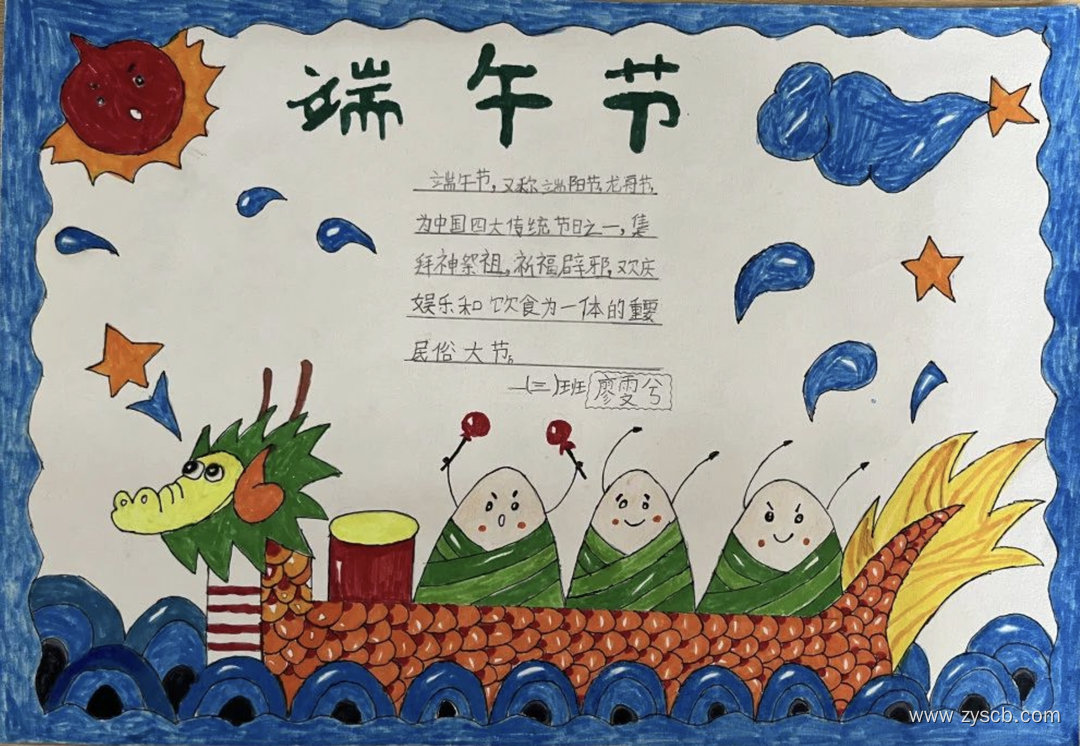 端午节
端午节,又称端阳节,龙哥节,
为中国四大传统节日之一,集
拜神祭祖,祈福辟邪,欢庆
娱乐和饮食为一体的重要
民俗大节。
一(三)班 廖雯兮
www.zyscb.com